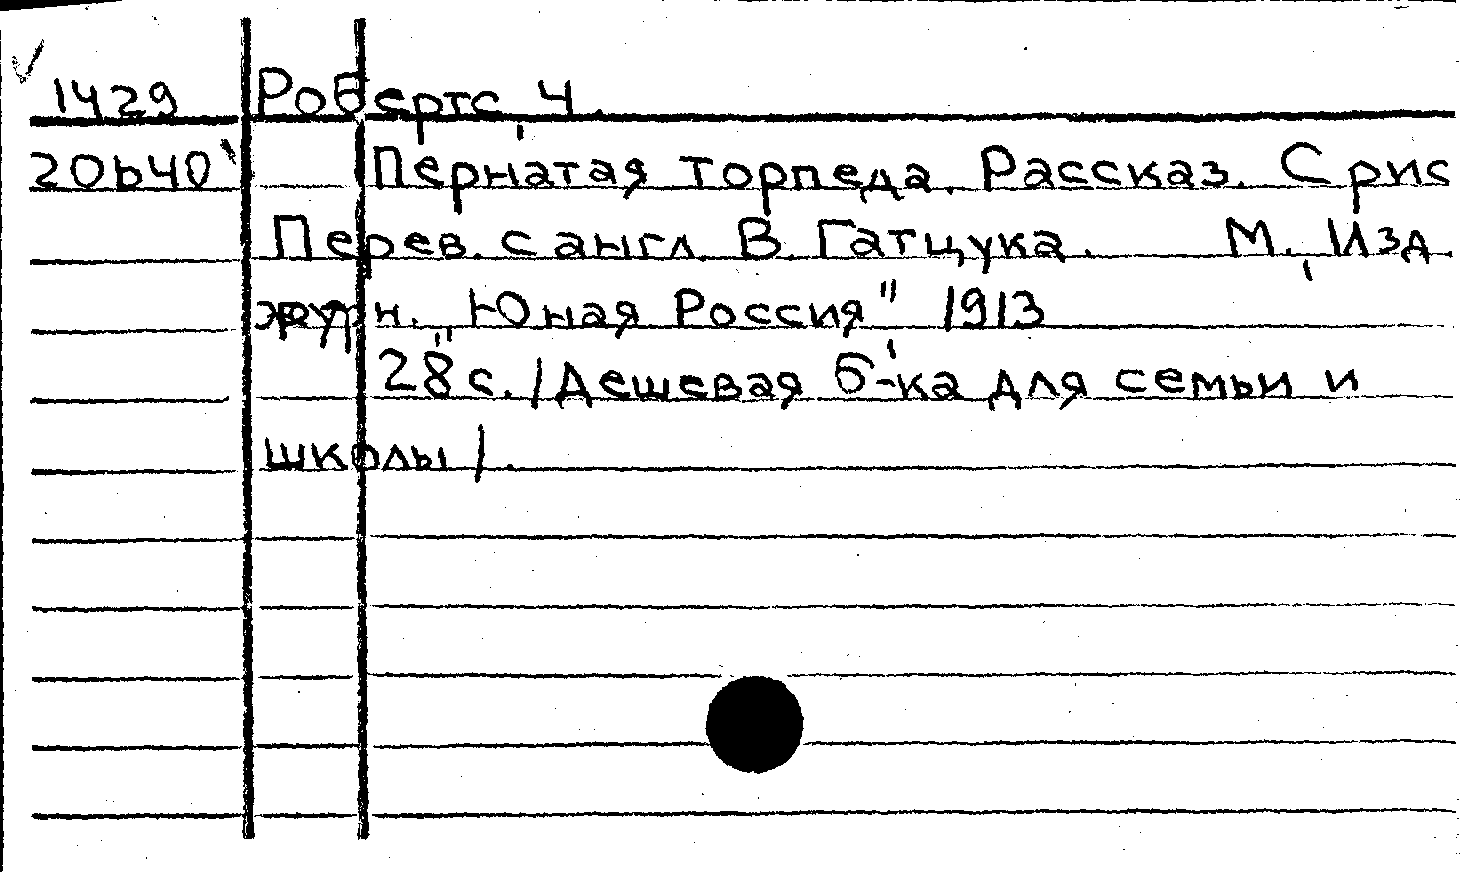 1429 Робертс, Ч.
20b40 Пернатая торпеда. Рассказ. С рис
Перев. с англ. В. Гатцука. М., Изд.
журн. "Юная Россия" 1913
28 с. /Дешевая б-ка для семьи и
школы/.